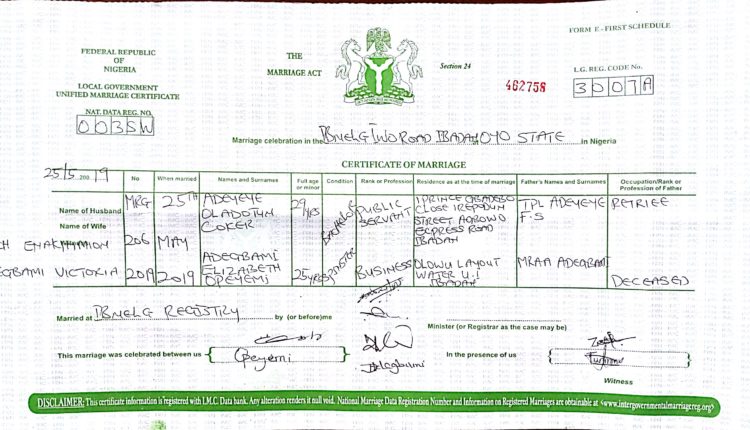 FORM E - FIRST SCHEDULE
FEDERAL REPUBLIC
OF
NIGERIA
LOCAL GOVERNMENT
UNIFIED MARRIAGE CERTIFICATE
NAT. DATA REG. NO.
0035W
THE
MARRIAGE ACT
Section 24
462758
L.G. REG. CODE No.
3007A
Marriage celebration in the IBNELG IWO ROAD IBADAN OYO STATE in Nigeria
CERTIFICATE OF MARRIAGE
25/5 200 19
No When married Names and Surnames Full age or minor Condition Rank or Profession Residence as at the time of marriage Father's Names and Surnames Occupation/Rank or Profession of Father
Name of Husband
MRG 25TH ADEYEYE OLADOTUN COKER 29 YRS BACHELOR PUBLIC SERVANT 1 PRINCE GBADEBO CLOSE IREPODUN STREET AGBOWO EXPRESS ROAD IBADAN TPL ADEYEYE F.S RETRIEE
Name of Wife
206 2019 MAY 2019 ADEGBAMI ELIZABETH OPEYEMI 25 YRS SPINSTER BUSINESS OLOWU LAYOUT WATER U.I IBADAN ADEGBAMI DECEASED
VICTORIA
Married at IBNELG REGISTRY by (or before)me
Minister (or Registrar as the case may be)
This marriage was celebrated between us
Opeyemi
Adegbami
In the presence of us
Witness
DISCLAIMER: This certificate information is registered with I.M.C. Data bank. Any alteration renders it null void. National Marriage Data Registration Number and Information on Registered Marriages are obtainable at <www.intergovernmentalmarriagereg.org>